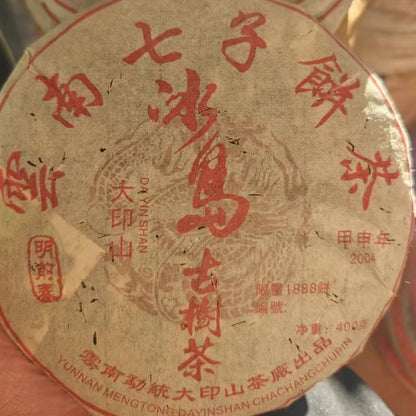 雲南七子餅茶
冰島古樹茶
大印山
DAYINSHAN
明前春
甲申年
2004
限量1888餅
編號:
净重:400克
雲南勐統大印山茶廠出品
YUNNAN MENGTONG DAYINSHAN CHACHANGCHUPIN